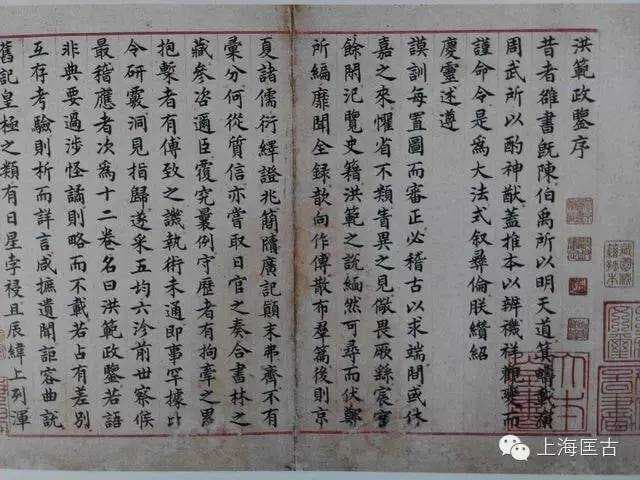 洪範政鑒序
昔者雒書既陳伯禹所以明天道箕疇載演
周武所以酌神猷蓋推本以辨禨祥觀變而
謹命令是為大法式叙彝倫朕纘紹
慶靈述遵
謨訓每置圖而審正必稽古以求端間或休
嘉之來懼省不類眚異之見儆畏厥繇宸
餘閑汜覽史籍洪範之說緬然可尋而伏鄭
所編靡聞全録歆向作傳散布羣篇後則京
夏諸儒衍繹證兆簡牘廣記顛末弗齊不有
彙分何從質信亦嘗取日官之奏合書林之
藏參咨邇臣覆究曩例守歷者有拘牽之累
抱槧者有傅致之譏執術未通即事罕據比
令研覈洞見指歸遂采五均六沴前世察候
最稽應者次為十二卷名曰洪範政鑒若語
非典要過涉怪譎則略而不載若占有差別
互存考驗則析而詳言咸摭遺聞詎容曲說
舊記皇極之類有日星孛祲且辰緯上列渾
上海匡古